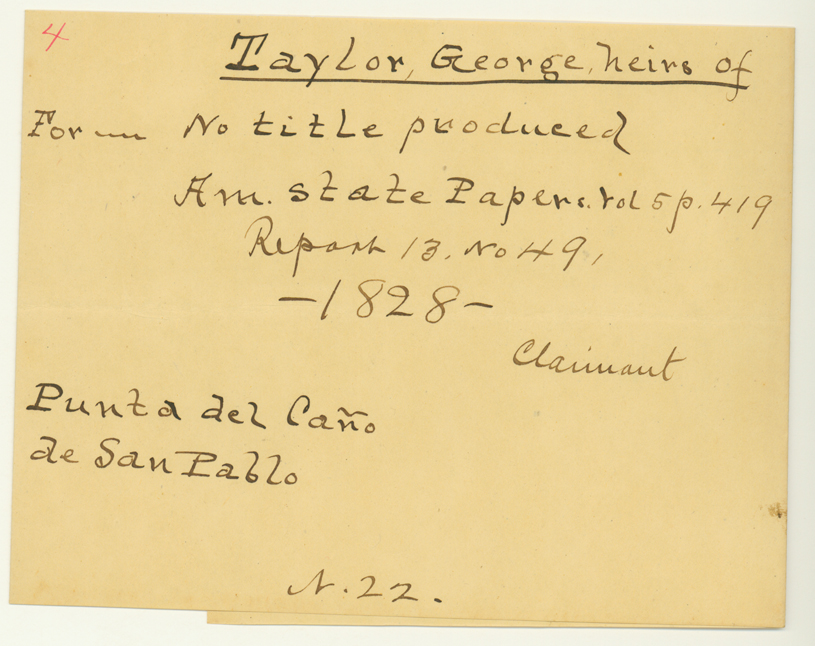 4
Taylor, George, heirs of
For — No title produced
Am. State Papers. Vol 5 p. 419
Report 13. No 49,
-1828-
Claimant
Punta del Caño
de San Pablo
N. 22.